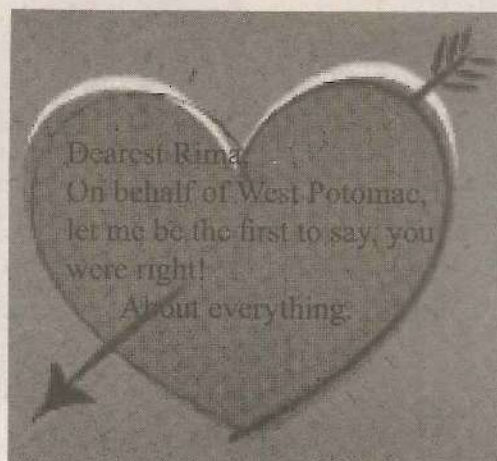 Dearest Rima,
On behalf of West Potomac,
let me be the first to say, you
were right!
About everything.